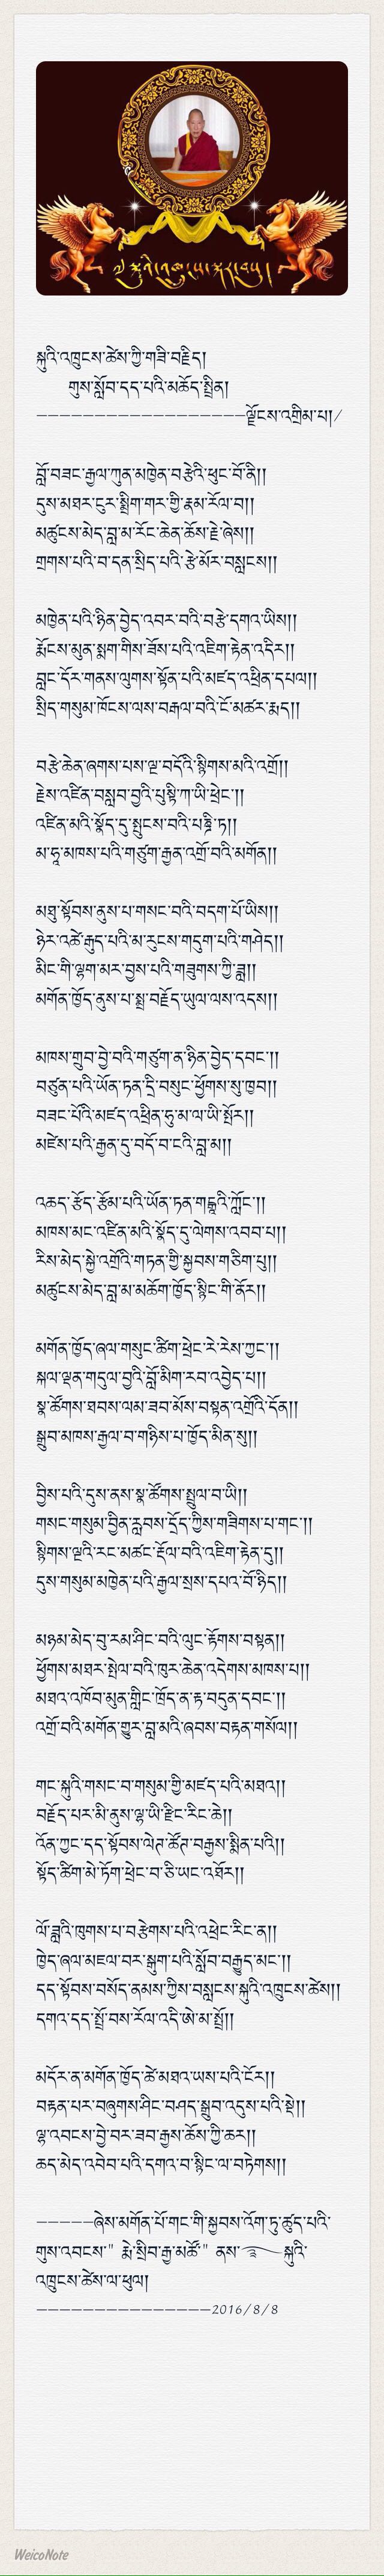 སྐུའི་འཁྲུངས་ཚེས་ཀྱི་གཟི་བརྗིད།
གུས་སློབ་དད་པའི་མཆོད་སྤྲིན།
——————————————————ལྗོངས་འགྲིམ་པ།/
བློ་བཟང་རྒྱལ་ཀུན་མཁྱེན་བརྩེའི་ཕུང་པོ་ནི།།
དུས་མཐར་ངུར་སྨྲིག་གར་གྱི་རྣམ་རོལ་བ།།
མཚུངས་མེད་བླ་མ་རོང་ཆེན་ཆོས་རྗེ་ཞེས།།
གྲགས་པའི་བ་དན་སྲིད་པའི་རྩེ་མོར་བསླངས།།
མཁྱེན་པའི་ཉིན་བྱེད་འབར་བའི་བརྩེ་དགའ་ཡིས།།
རྨོངས་མུན་སྨག་གིས་ཟོས་པའི་འཇིག་རྟེན་འདིར།།
བླང་དོར་གནས་ལུགས་སྟོན་པའི་མཛད་འཕྲིན་དཔལ།།
སྲིད་གསུམ་ཁོངས་ལས་བརྒལ་བའི་ངོ་མཚར་རྨད།།
བརྩེ་ཆེན་ཞགས་པས་ལྔ་བདོའི་སྙིགས་མའི་འགྲོ།།
རྗེས་འཛིན་བསླབ་བྱའི་པུསྟི་ཀ་ཡི་ཕྲེང་།།
འཛིན་མའི་སྣོད་དུ་སྤུངས་བའི་པཎྜི་ཏ།།
མ་ཧཱ་མཁས་པའི་གཙུག་རྒྱན་འགྲོ་བའི་མགོན།།
མཐུ་སྟོབས་ནུས་པ་གསང་བའི་བདག་པོ་ཡིས།།
ཉེར་འཚེ་རྒུད་པའི་མ་རུངས་གདུག་པའི་གཤེད།།
མིང་གི་ལྷག་མར་བྱས་པའི་གཟུགས་ཀྱི་ཟླ།།
མགོན་ཁྱོད་ནུས་པ་སྨྲ་བརྗོད་ཡུལ་ལས་འདས།།
མཁས་གྲུབ་བྱེ་བའི་གཙུག་ན་ཉིན་བྱེད་དབང་།།
བཙུན་པའི་ཡོན་ཏན་དྲི་བསུང་ཕྱོགས་སུ་ཁྱབ།།
བཟང་པོའི་མཛད་འཕྲིན་ཧུ་མ་ལ་ཡི་སྤོར།།
མཛེས་པའི་རྒྱན་དུ་བདོ་བ་ངའི་བླ་མ།།
འཆད་རྩོད་རྩོམ་པའི་ཡོན་ཏན་གངྒཱའི་ཀློང་།།
མཁས་མང་འཛིན་མའི་སྣོད་དུ་ལེགས་འབབ་པ།།
རིས་མེད་སྐྱེ་འགྲོའི་གཏན་གྱི་སྐྱབས་གཅིག་པུ།།
མཚུངས་མེད་བླ་མ་མཆོག་ཁྱོད་སྙིང་གི་ནོར།།
མགོན་ཁྱོད་ཞལ་གསུང་ཚིག་ཕྲེང་རེ་རེས་ཀྱང་།།
སྐལ་ལྡན་གདུལ་བྱའི་བློ་མིག་རབ་འབྱེད་པ།།
སྣ་ཚོགས་ཐབས་ལམ་ཟབ་མོས་བསྟན་འགྲོའི་དོན།།
སྒྲུབ་མཁས་རྒྱལ་བ་གཉིས་པ་ཁྱོད་མིན་སུ།།
བྱིས་པའི་དུས་ནས་སྣ་ཚོགས་སྤྲུལ་བ་ཡི།།
གསང་གསུམ་བྱིན་རླབས་དྲོད་ཀྱིས་གཟིགས་པ་གང་།།
སྙིགས་ལྔའི་རང་མཚང་རྡོལ་བའི་འཇིག་རྟེན་དུ།།
དུས་གསུམ་མཁྱེན་པའི་རྒྱལ་སྲས་དཔའ་བོ་ཉིད།།
མཉམ་མེད་བུ་རམ་ཤིང་བའི་ལུང་རྟོགས་བསྟན།།
ཕྱོགས་མཐར་སྤེལ་བའི་ཁུར་ཆེན་འདེགས་མཁས་པ།།
མཐའ་འཁོབ་མུན་གླིང་ཁྲོད་ན་རྟ་བདུན་དབང་།།
འགྲོ་བའི་མགོན་གྱུར་བླ་མའི་ཞབས་བརྟན་གསོལ།།
གང་སྐུའི་གསང་བ་གསུམ་གྱི་མཛད་པའི་མཐའ།།
བརྗོད་པར་མི་ནུས་ལྷ་ཡི་རྫིང་རིང་ཆེ།།
འོན་ཀྱང་དད་སྟོབས་ལེཤ་ཚོཤ་བརྒྱས་སྨིན་པའི།།
སྟོད་ཚིག་མེ་ཏོག་ཕྲེང་བ་ཅི་ཡང་འཐོར།།
ལོ་ཟླའི་ཁུགས་པ་བརྩེགས་པའི་འཕྲེང་རིང་ན།།
ཁྱེད་ཞལ་མཇལ་བར་སྒུག་པའི་སློབ་བརྒྱུད་མང་།།
དད་སྟོབས་བསོད་ནམས་ཀྱིས་བསླངས་སྐུའི་འཁྲུངས་ཚེས།།
དགའ་དད་སྤྲོ་བས་རོལ་འདི་ཨེ་མ་སྤྲོ།།
མདོར་ན་མགོན་ཁྱོད་ཚེ་མཐའ་ཡས་པའི་ངོར།།
བརྟན་པར་བཞུགས་ཤིང་བཤད་སྒྲུབ་འདུས་པའི་སྡེ།།
ལྷ་འབངས་བྱེ་བར་ཟབ་རྒྱས་ཆོས་ཀྱི་ཆར།།
ཆད་མེད་འབེབ་པའི་དགའ་བ་སྙིང་ལ་བཏེགས།།
—————ཞེས་མགོན་པོ་གང་གི་སྐྱབས་འོག་ཏུ་ཚུད་པའི་
གུས་འབངས་" རྨེ་སྲིབ་རྒྱ་མཚོ་" ནས་ སྐུའི་
འཁྲུངས་ཚེས་ལ་ཕུལ།
———————————————2016/8/8
WeicoNote